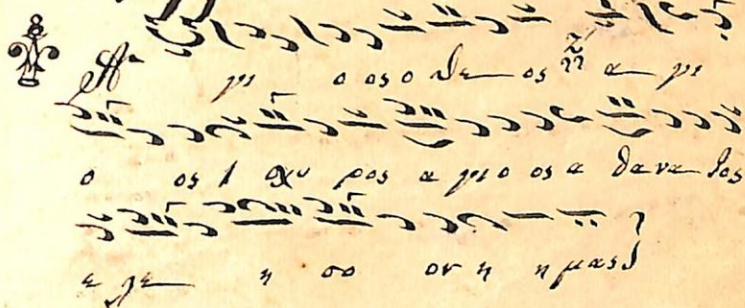 Α γι ο ος ο θε ος α γι
ο ος ι σχυ ρος α γιο ος α θανα τος
ε λε η σο ον η ημας